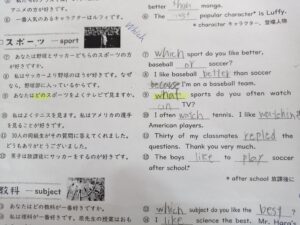 アニメの方が好きです。
⑥ 一番人気のあるキャラクターはルフィです。
better than manga.
⑥ The most popular character* is Luffy.
* character キャラクター、登場人物
which
スポーツ — sport
⑦ あなたは野球とサッカーとどちらのスポーツの方が好きですか。
⑧ 私はサッカーより野球のほうが好きです。なぜなら、野球部に入っているからです。
⑨ あなたはどのスポーツをよくテレビで見ますか。
⑩ 私はよくテニスを見ます。私はアメリカの選手を見ることが好きです。
⑪ 30人の同級生がその質問に答えてくれました。どうもありがとうございました。
⑫ 男子は放課後にサッカーをするのが好きです。
⑦ which sport do you like better,
baseball or soccer?
⑧ I like baseball better than soccer
because I'm on a baseball team.
⑨ what sports do you often watch
on TV?
⑩ I often watch tennis. I like watching
American players.
⑪ Thirty of my classmates replied the
questions. Thank you very much.
⑫ The boys like to play soccer
after school.*
* after school 放課後に
教科 — subject
⑬ あなたはどの教科が一番好きですか。
⑬ which subject do you like the best?
⑭ I like science the best. Mr. Hara's